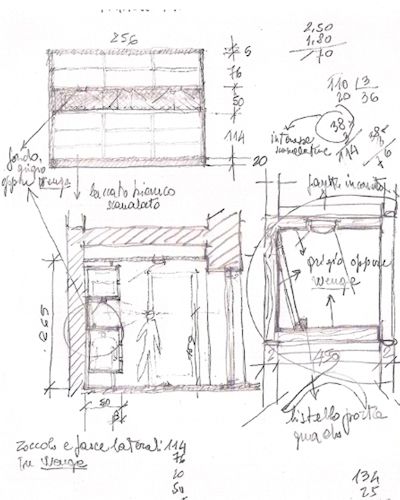 256
6
76
50
114
20
2,50
1,80
110 | 3
20 36
38
114
fondo
grigio
oppure wenge
laccato bianco
scanalato
faretti incassati
grigio oppure
wenge
265
50
2 450 2
listello porta
quadro
Zoccolo e fasce laterali 114
In Wenge 76
20
50
134
25